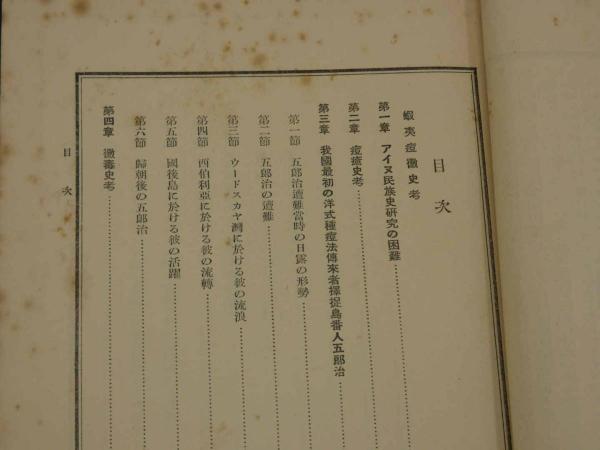 目次
蝦夷痘黴史考
第一章 アイヌ民族史研究の困難
第二章 痘瘡史考
第三章 我國最初の洋式種痘法傳來者擇捉島番人五郎治
第一節 五郎治遭難當時の日露の形勢
第二節 五郎治の遭難
第三節 ウードスカヤ灣に於ける彼の流浪
第四節 西伯利亞に於ける彼の流轉
第五節 國後島に於ける彼の活躍
第六節 歸朝後の五郎治
第四章 黴毒史考
目次